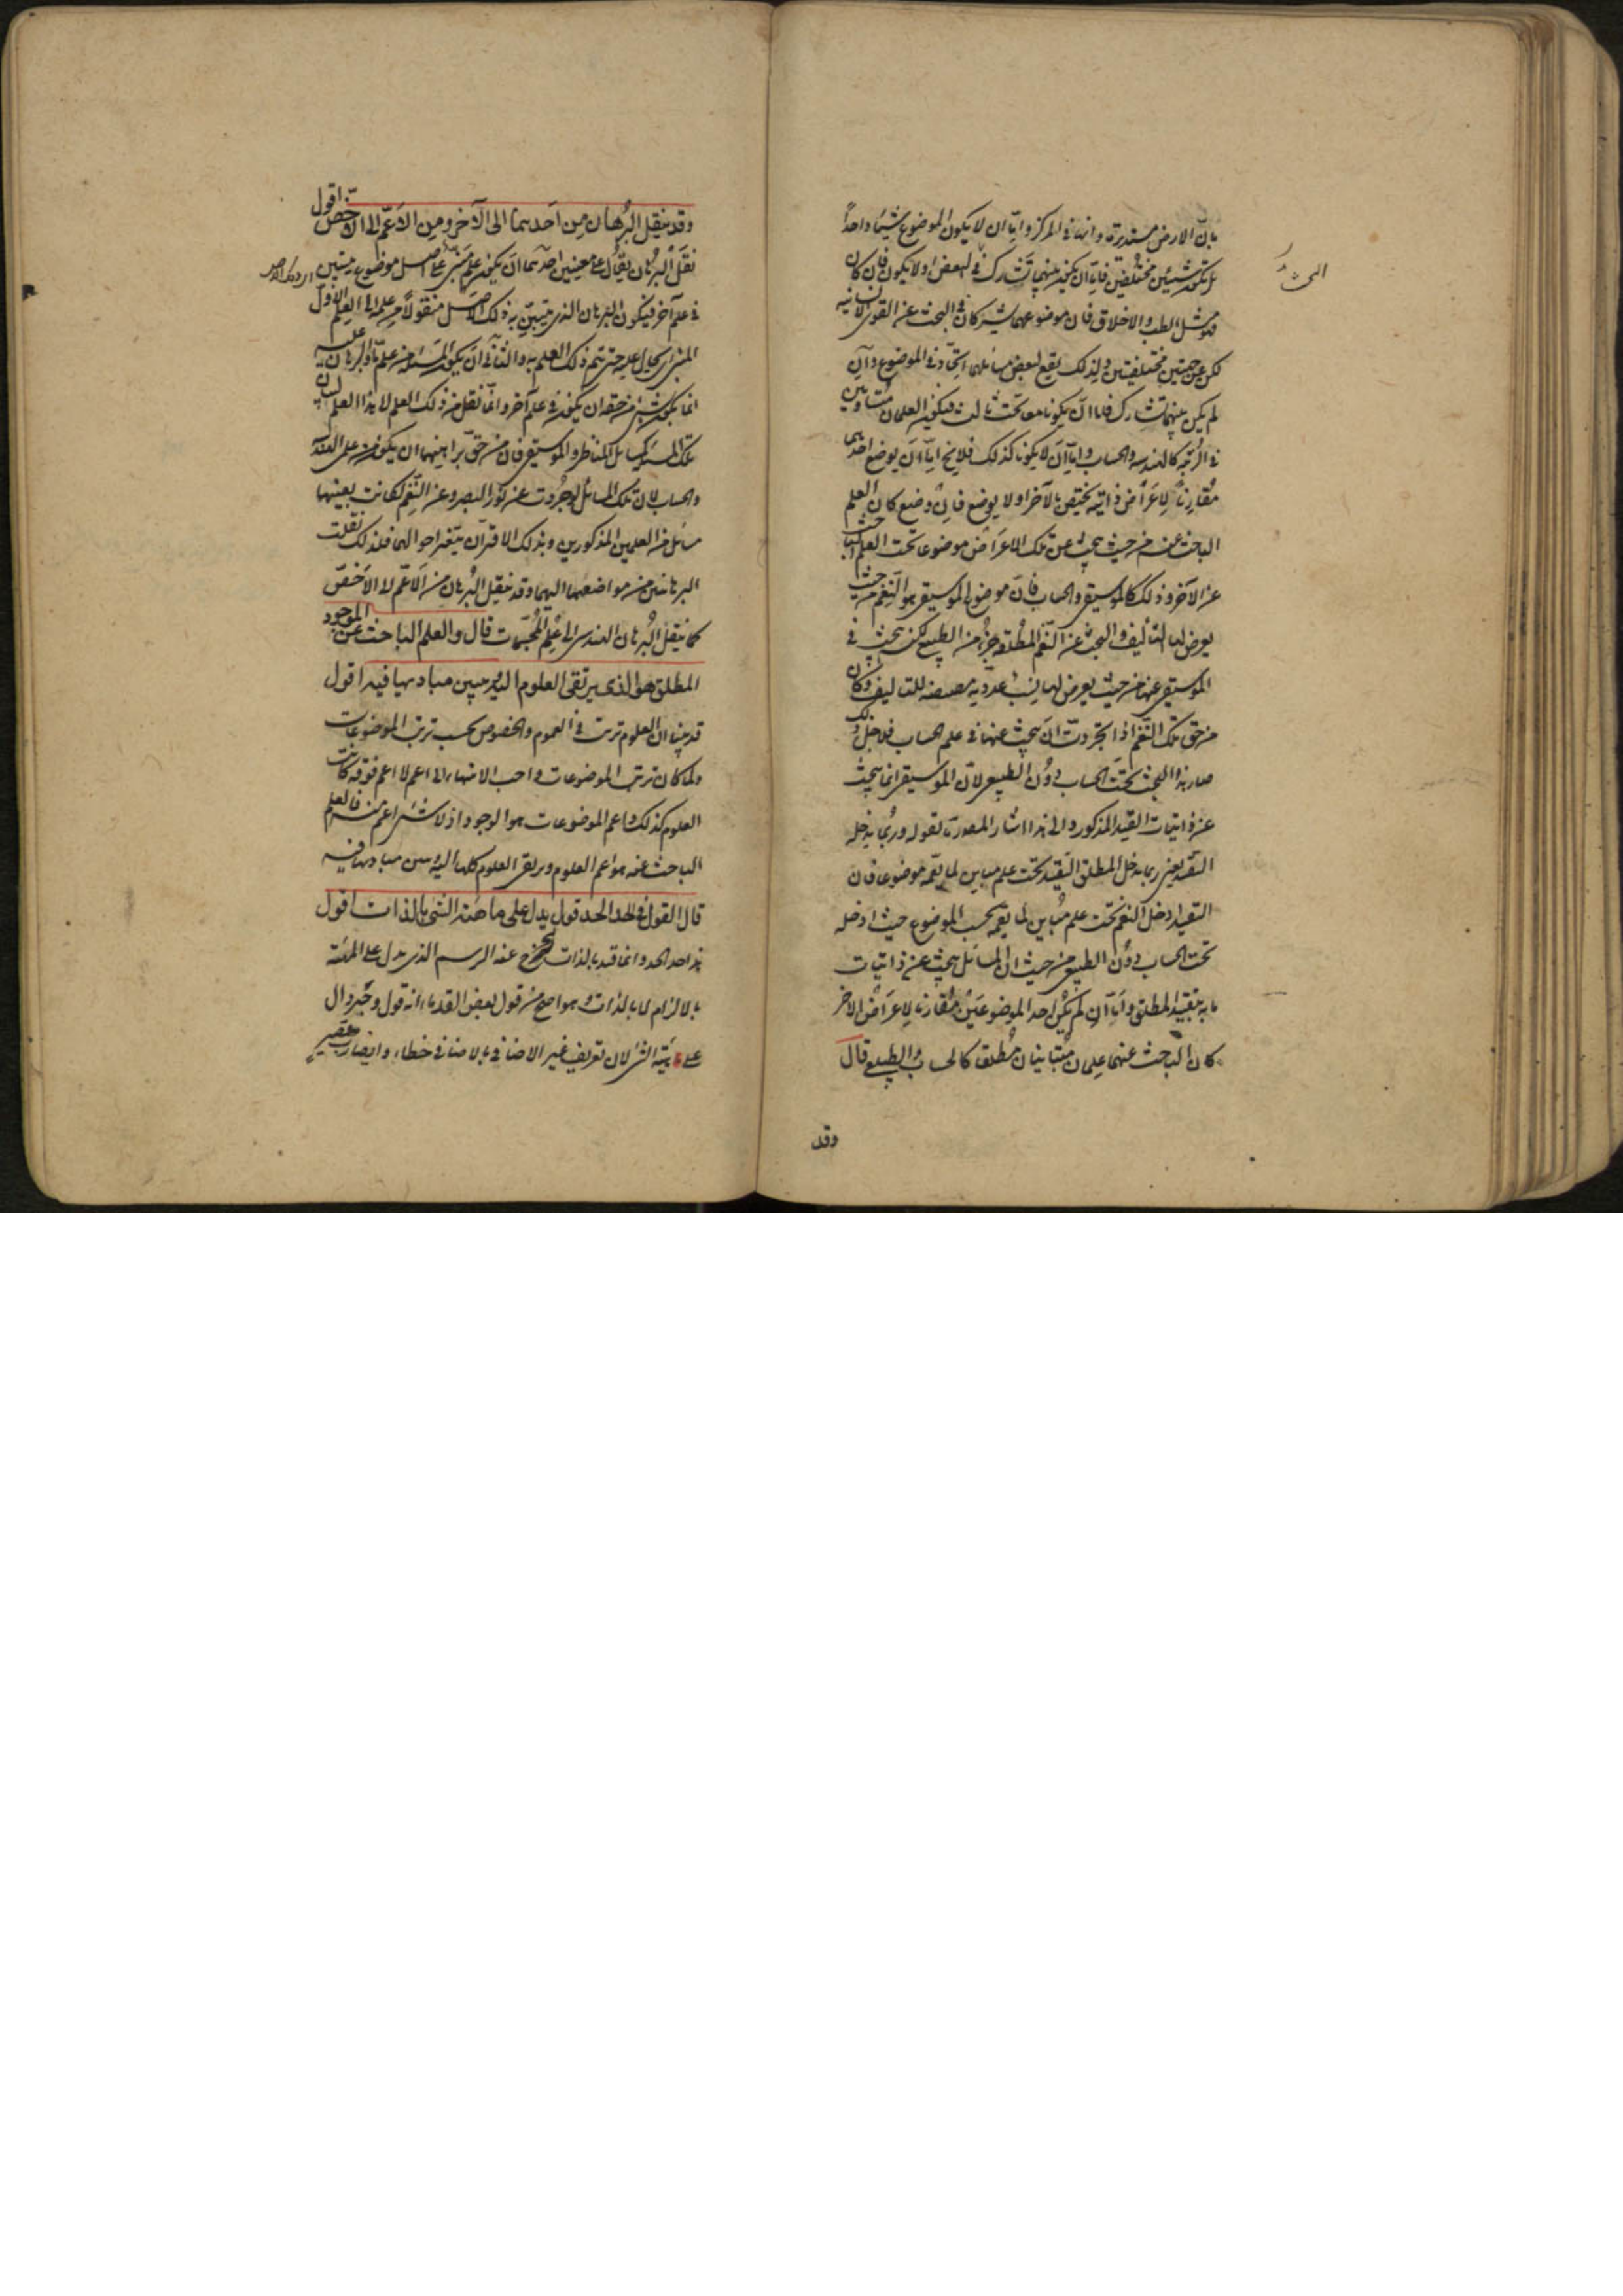 بان الارض مستديرة وانها في المركز واما ان لا يكون الموضوع شيئا واحدا
بل يكون شيئين مختلفين فاما ان يكون بينهما تشارك في البعض او لا يكون فان كان
فهو مثل الطب والاخلاق فان موضوعهما يشتركان في البحث عن القوى الانسانية
لكن عن جهتين مختلفتين ولذلك يقع لبعض مسائلهما اتحاد في الموضوع وان
لم يكن بينهما تشارك فاما ان يكونا معا تحت ثالث فيكون العلمان متساويين
في الرتبة كالهندسة والحساب واما ان لا يكونا كذلك فلا يخ اما ان يوضع احدهما
مقارنا لاعراض ذاتية يختص بالآخر او لا يوضع فان وضع كان العلم
الباحث عنه من حيث يبحث عن تلك الاعراض موضوعا تحت العلم الباحث
عن الآخر وذلك كالموسيقى والحساب فان موضوع الموسيقى هو النغم من حيث
يعرض لها التأليف والبحث عن النغم المطلقة جزء من الطبيعي لكن يبحث في
الموسيقى عنها من حيث يعرض لها نسب عددية مقتضية للتأليف وكان
من حق تلك النغم اذا تجردت ان يبحث عنها في علم الحساب فلاجل ذلك
صار هذا البحث تحت الحساب دون الطبيعي لان الموسيقى انما يبحث
عن ذاتيات القيد المذكور والى هذا اشار المصدرنا لقوله وربما يدخله
التقييد يعنى ربما يدخل المطلق التقييد تحت علم مباين لما يعمه موضوعا فان
التقييد ادخل النغم تحت علم مباين لما يعمه بحسب الموضوع حيث ادخله
تحت الحساب دون الطبيعي من حيث ان المسائل يبحث عن ذاتيات
ما به تقييد المطلق واما ان لم يكن احد الموضوعين مقارنا لاعراض الآخر
كان الباحث عنهما علمان متباينان مطلقا كالحساب والطبيعي قال
وقد
وقد ينقل البرهان من احدهما الى الآخر ومن الاعم الى الاخص اقول
نقل البرهان يقال على معنيين احدهما ان يكون علم مبنى على اصل موضوع يتبين
في علم آخر فيكون البرهان الذي يتبين به ذلك الاصل منقولا من علمه الى العلم الاول
المبنى اى يحال عليه حتى يتم ذلك العلم به والثانى ان يكون المسئلة من علم ما والبرهان عليه
انما يكون بشئ من حقه ان يكون في علم آخر وانما نقل من ذلك العلم الى هذا العلم لبيان
تلك المسئلة كمسائل المناظر والموسيقى فان من حق براهينهما ان يكون من علمى الهندسة
والحساب لان تلك المسائل لو جردت عن نور البصر وعن النغم لكانت بعينها
مسائل من العلمين المذكورين وبذلك الاقتران يتغير احوالهما فلذلك نقلت
البرهانين من مواضعهما اليهما وقد ينقل البرهان من الاعم الى الاخص
كما ينقل البرهان الهندسى الى علم المجسمات قال والعلم الباحث عن الموجود
المطلق هو الذى يرتقى العلوم اليه ويبين مباديها فيه اقول
قد بينا ان العلوم ترتب في العموم والخصوص بحسب ترتب الموضوعات
ولما كان ترتب الموضوعات واجب الانتهاء الى اعم لا اعم فوقه كانت
العلوم كذلك واعم الموضوعات هو الوجود اذ لا شئ اعم منه فالعلم
الباحث عنه هو اعم العلوم ويرتقى العلوم كلها اليه ويبين مباديها فيه
قال القول في الحد الحد قول يدل على ماهية الشئ بالذات اقول
هذا حد الحد وانما قيد بالذات ليخرج عنه الرسم الذى يدل على المهية
بالالزام لا بالذات وهو اصح من قول بعض القدماء انه قول وجيز دال
على مهية الشئ لان تعريف غير الاضافى بالاضافى خطاء وايضا رب